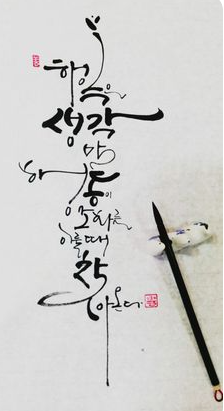 행복은
생각
말
행동이
조화를
이룰때
찾아온다